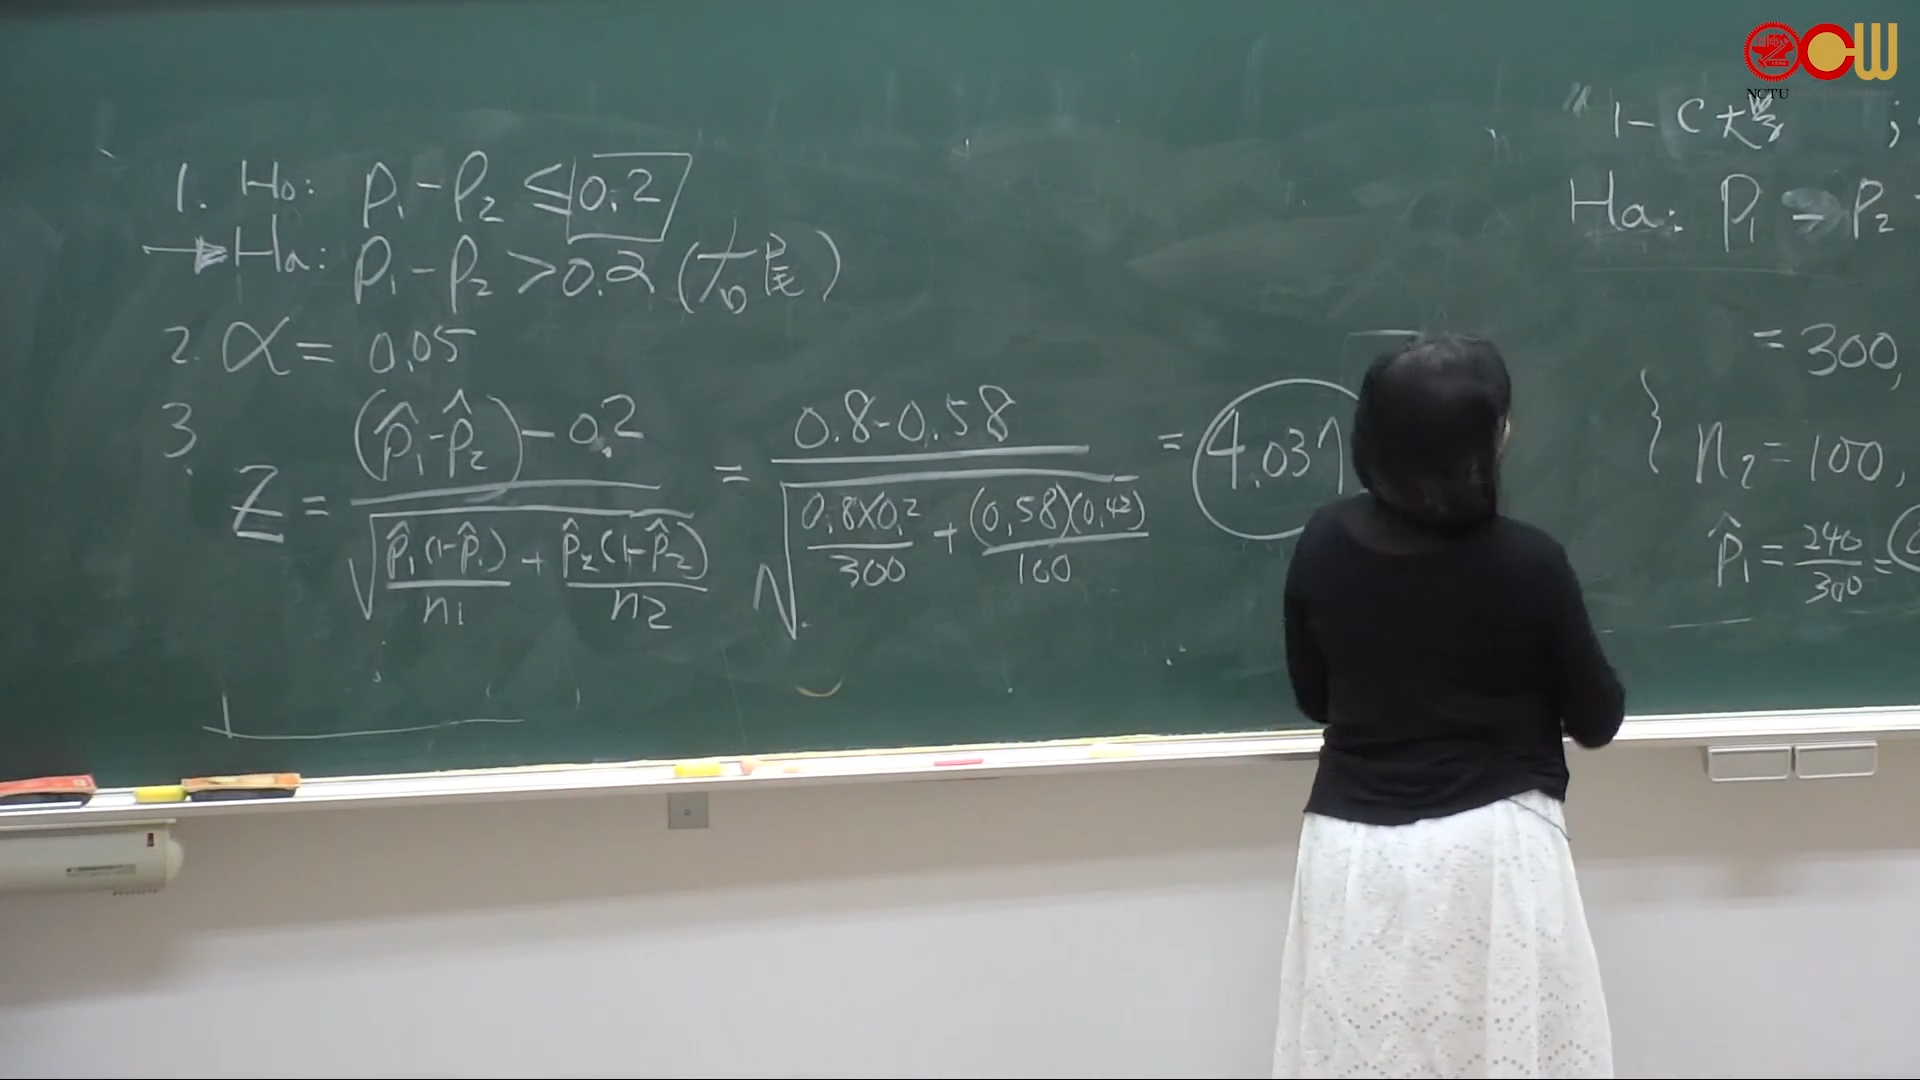 NCTU
1. H₀: p₁ - p₂ ≤ 0.2
→ Ha: p₁ - p₂ > 0.2 (右尾)
2. α = 0.05
3. Z = ((p̂₁ - p̂₂) - 0.2) / √(p̂₁(1-p̂₁)/n₁ + p̂₂(1-p̂₂)/n₂) = (0.8 - 0.58) / √((0.8×0.2)/300 + (0.58)(0.42)/100) = 4.037
1 - C大學 ;
Ha: p₁ - p₂
= 300,
n₂ = 100,
p̂₁ = 240/300 =